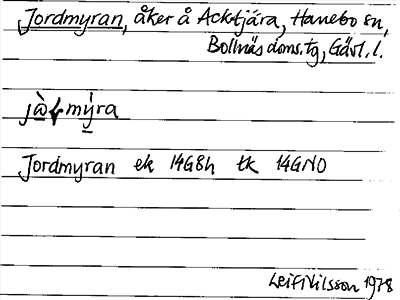 Jordmyran, åker å Acktjära, Hanebo sn,
Bollnäs doms.tg, Gävl. l.
Jordmyran ek 14G8h tk 14GNO
Leif Nilsson 1978